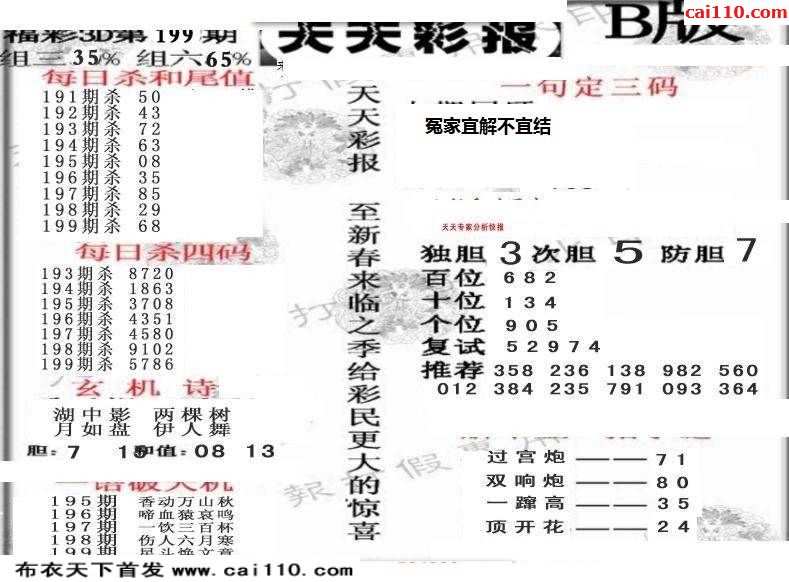 cai110.com
福彩3D第199期
【天天彩报】
B版
组三35% 组六65%
每日杀和尾值
191期杀 50
192期杀 43
193期杀 72
194期杀 63
195期杀 08
196期杀 35
197期杀 85
198期杀 29
199期杀 68
每日杀四码
193期杀 8720
194期杀 1863
195期杀 3708
196期杀 4351
197期杀 4580
198期杀 9102
199期杀 5786
玄机诗
湖中影 两棵树
月如盘 伊人舞
胆:7 15 和值:08 13
一语破天机
195期 香动万山秋
196期 啼血猿哀鸣
197期 一饮三百杯
198期 伤人六月寒
199期 星斗焕文章
天天彩报 至新春来临之季给彩民更大的惊喜
一句定三码
冤家宜解不宜结
天天专家分析快报
独胆 3 次胆 5 防胆 7
百位 682
十位 134
个位 905
复试 52974
推荐 358 236 138 982 560
012 384 235 791 093 364
过宫炮———71
双响炮———80
一蹿高———35
顶开花———24
布衣天下首发 www.cai110.com